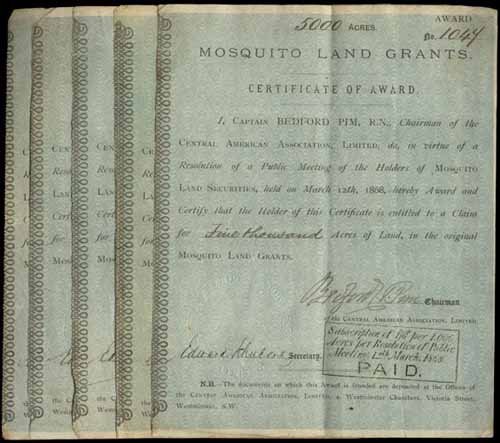 5000 ACRES.
AWARD
No. 1047
MOSQUITO LAND GRANTS.
CERTIFICATE OF AWARD.
I, CAPTAIN BEDFORD PIM, R.N., Chairman of the
CENTRAL AMERICAN ASSOCIATION, LIMITED, do, in virtue of a
Resolution of a Public Meeting of the Holders of MOSQUITO
LAND SECURITIES, held on March 12th, 1868, hereby Award and
Certify that the Holder of this Certificate is entitled to a Claim
for Five thousand Acres of Land, in the original
MOSQUITO LAND GRANTS.
Bedford Pim Chairman
of the CENTRAL AMERICAN ASSOCIATION, LIMITED.
Subscription of per 1,000
Acres per Resolution of Public
Meeting, 12th March, 1868.
PAID.
Edward Secretary.
N.B.—The documents on which this Award is founded are deposited at the Offices of
the CENTRAL AMERICAN ASSOCIATION, LIMITED, Westminster Chambers, Victoria Street,
Westminster, S.W.